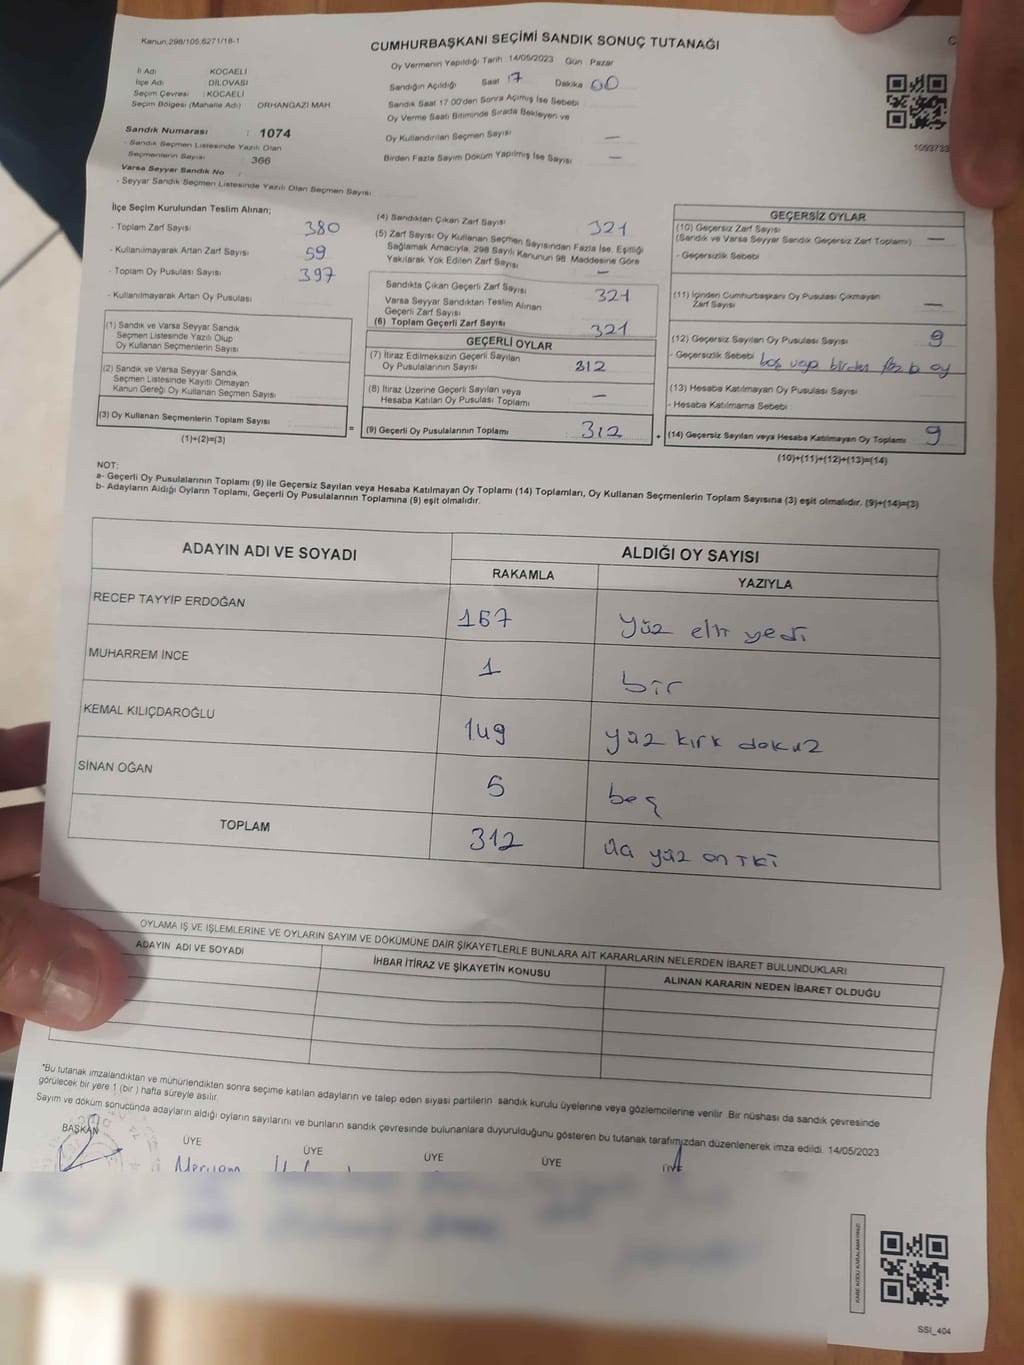 Kanun.298/105;6271/18-1
CUMHURBAŞKANI SEÇİMİ SANDIK SONUÇ TUTANAĞI
İl Adı KOCAELİ
İlçe Adı DİLOVASI
Seçim Çevresi : KOCAELİ
Seçim Bölgesi (Mahalle Adı) ORHANGAZİ MAH.
Oy Vermenin Yapıldığı Tarih : 14/05/2023 Gün : Pazar
Sandığın Açıldığı Saat 17 Dakika 00
Sandık Saat 17.00'den Sonra Açılmış İse Sebebi
Oy Verme Saati Bitiminde Sırada Bekleyen ve
Oy Kullandırılan Seçmen Sayısı —
Birden Fazla Sayım Döküm Yapılmış İse Sayısı —
Sandık Numarası : 1074
- Sandık Seçmen Listesinde Yazılı Olan
Seçmenlerin Sayısı : 366
Varsa Seyyar Sandık No :
- Seyyar Sandık Seçmen Listesinde Yazılı Olan Seçmen Sayısı
1093733
İlçe Seçim Kurulundan Teslim Alınan;
- Toplam Zarf Sayısı 380
- Kullanılmayarak Artan Zarf Sayısı 59
- Toplam Oy Pusulası Sayısı 397
- Kullanılmayarak Artan Oy Pusulası
(1) Sandık ve Varsa Seyyar Sandık
Seçmen Listesinde Yazılı Olup
Oy Kullanan Seçmenlerin Sayısı
(2) Sandık ve Varsa Seyyar Sandık
Seçmen Listesinde Kayıtlı Olmayan
Kanun Gereği Oy Kullanan Seçmen Sayısı
(3) Oy Kullanan Seçmenlerin Toplam Sayısı
(1)+(2)=(3)
=
(4) Sandıktan Çıkan Zarf Sayısı 321
(5) Zarf Sayısı Oy Kullanan Seçmen Sayısından Fazla İse, Eşitliği
Sağlamak Amacıyla, 298 Sayılı Kanunun 98. Maddesine Göre
Yakılarak Yok Edilen Zarf Sayısı —
Sandıkta Çıkan Geçerli Zarf Sayısı 321
Varsa Seyyar Sandıktan Teslim Alınan
Geçerli Zarf Sayısı
(6) Toplam Geçerli Zarf Sayısı 321
GEÇERLİ OYLAR
(7) İtiraz Edilmeksizin Geçerli Sayılan
Oy Pusulalarının Sayısı 312
(8) İtiraz Üzerine Geçerli Sayılan veya
Hesaba Katılan Oy Pusulası Toplamı —
(9) Geçerli Oy Pusulalarının Toplamı 312
+
GEÇERSİZ OYLAR
(10) Geçersiz Zarf Sayısı
(Sandık ve Varsa Seyyar Sandık Geçersiz Zarf Toplamı) —
- Geçersizlik Sebebi
(11) İçinden Cumhurbaşkanı Oy Pusulası Çıkmayan
Zarf Sayısı —
(12) Geçersiz Sayılan Oy Pusulası Sayısı 9
- Geçersizlik Sebebi boş veya birden oy
(13) Hesaba Katılmayan Oy Pusulası Sayısı
- Hesaba Katılmama Sebebi
(14) Geçersiz Sayılan veya Hesaba Katılmayan Oy Toplamı 9
(10)+(11)+(12)+(13)=(14)
NOT:
a- Geçerli Oy Pusulalarının Toplamı (9) ile Geçersiz Sayılan veya Hesaba Katılmayan Oy Toplamı (14) Toplamları, Oy Kullanan Seçmenlerin Toplam Sayısına (3) eşit olmalıdır. (9)+(14)=(3)
b- Adayların Aldığı Oyların Toplamı, Geçerli Oy Pusulalarının Toplamına (9) eşit olmalıdır.
ADAYIN ADI VE SOYADI ALDIĞI OY SAYISI
RAKAMLA YAZIYLA
RECEP TAYYİP ERDOĞAN 157 yüz elli yedi
MUHARREM İNCE 1 bir
KEMAL KILIÇDAROĞLU 149 yüz kırk dokuz
SİNAN OĞAN 5 beş
TOPLAM 312 üç yüz on iki
OYLAMA İŞ VE İŞLEMLERİNE VE OYLARIN SAYIM VE DÖKÜMÜNE DAİR ŞİKAYETLERLE BUNLARA AİT KARARLARIN NELERDEN İBARET BULUNDUKLARI
ADAYIN ADI VE SOYADI İHBAR İTİRAZ VE ŞİKAYETİN KONUSU ALINAN KARARIN NEDEN İBARET OLDUĞU
*Bu tutanak imzalandıktan ve mühürlendikten sonra seçime katılan adayların ve talep eden siyasi partilerin sandık kurulu üyelerine veya gözlemcilerine verilir. Bir nüshası da sandık çevresinde
görülecek bir yere 1 (bir ) hafta süreyle asılır.
Sayım ve döküm sonucunda adayların aldığı oyların sayılarını ve bunların sandık çevresinde bulunanlara duyurulduğunu gösteren bu tutanak tarafımızdan düzenlenerek imza edildi. 14/05/2023
BAŞKAN ÜYE ÜYE ÜYE ÜYE ÜYE
Meryem
KARE KODU KARALAMAYINIZ!
SSI_404